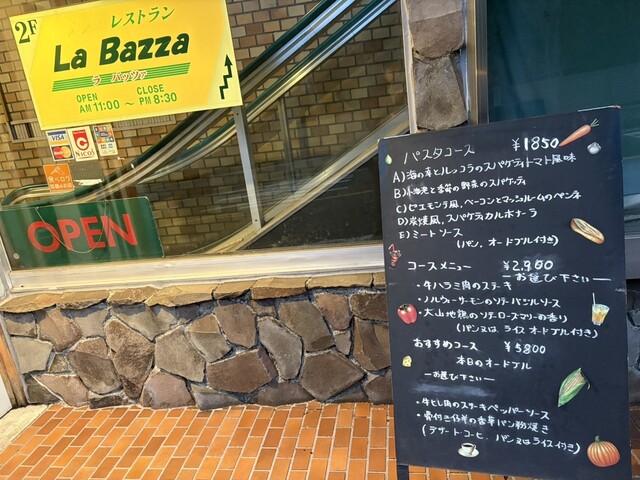 2F
レストラン
La Bazza
ラ バッツァ
OPEN CLOSE
AM 11:00 ～ PM 8:30
VISA
MasterCard
NICOS
食べログ
OPEN
パスタコース ￥1850
A) 海の幸とルッコラのスパゲティトマト風味
B) 小海老と季節の野菜のスパゲッティ
C) ピエモンテ風、ベーコンとマッシュルームのペンネ
D) 炭焼風、スパゲティカルボナーラ
E) ミートソース
(パン、オードブル付き)
コースメニュー ￥2,960
ーお選び下さいー
・牛ハラミ肉のステーキ
・ノルウェーサーモンのソテーバジルソース
・大山地鶏のソテーローズマリーの香り
(パン又は、ライス オードブル付き)
おすすめコース ￥5800
本日のオードブル
ーお選び下さいー
・牛ヒレ肉のステーキペッパーソース
・骨付き仔羊の香草パン粉焼き
(デザート・コーヒ、パン又はライス付き)